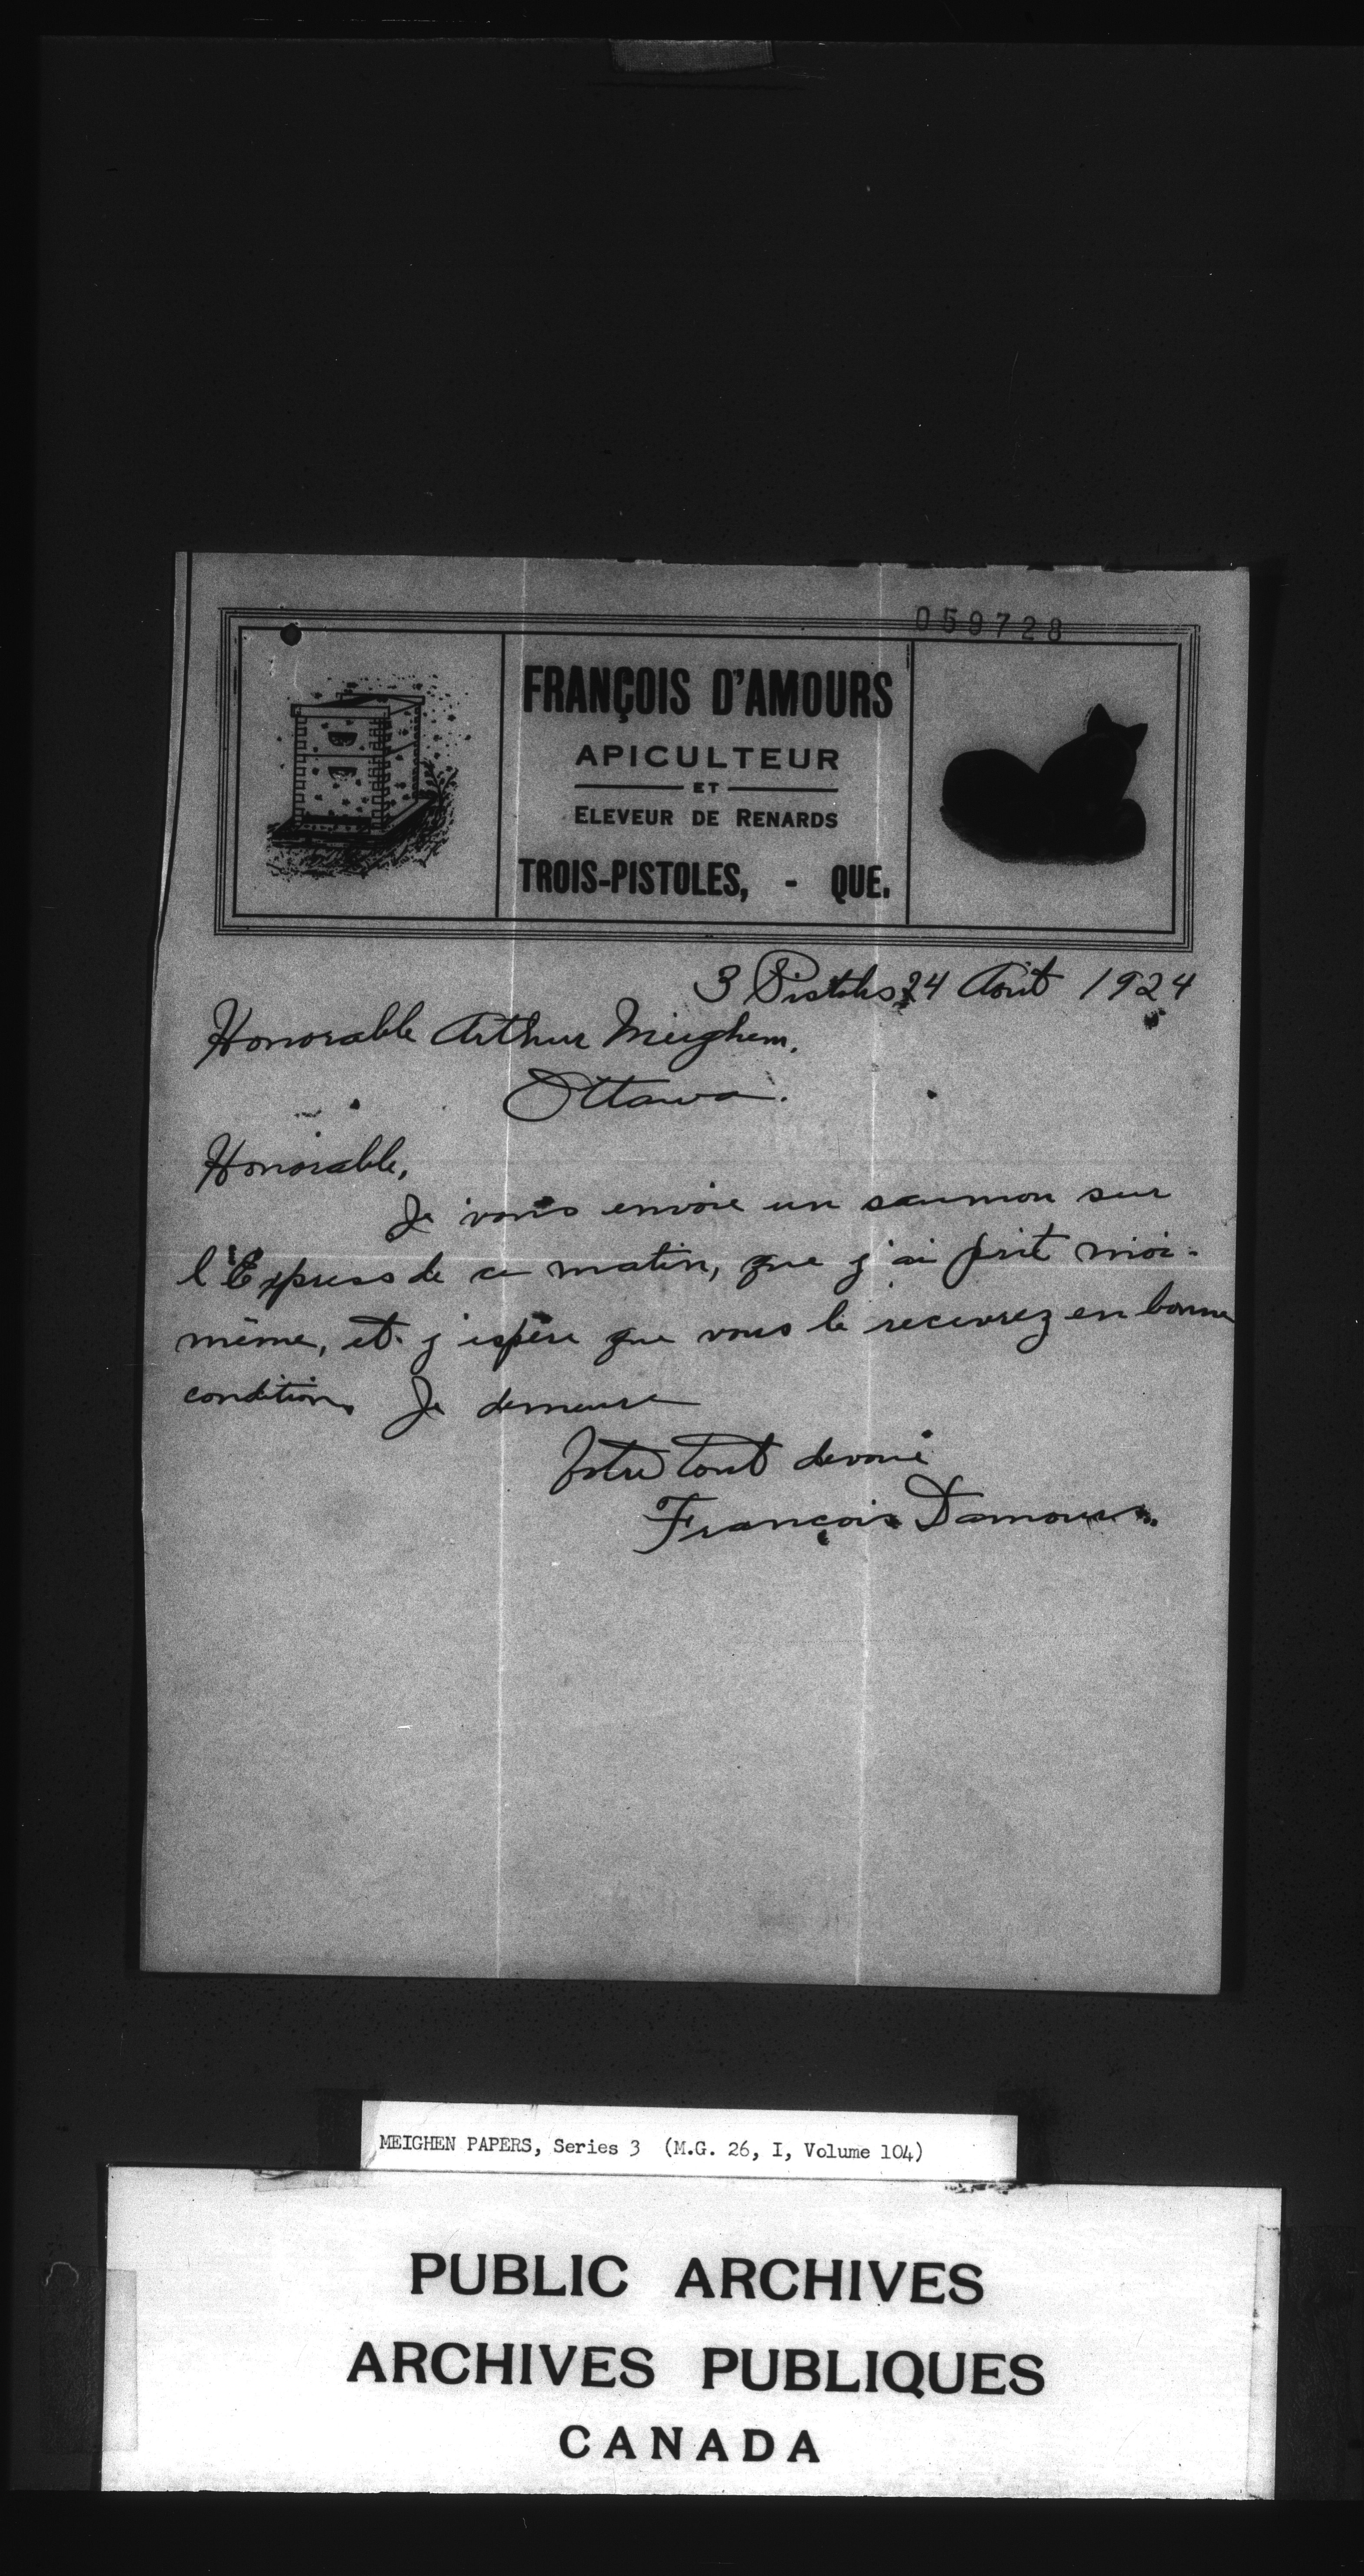 059728
FRANÇOIS D'AMOURS
APICULTEUR
ET
ELEVEUR DE RENARDS
TROIS-PISTOLES, - QUE.
3 Pistoles 24 Août 1924
Honorable Arthur Meighem.
Ottawa.
Honorable,
Je vous envoie un saumon sur
l'Express de ce matin, que j'ai prit moi-
même, et j'espère que vous le recevrez en bonne
condition. Je demeure
Votre tout devoué
François Damours.
MEIGHEN PAPERS, Series 3 (M.G. 26, I, Volume 104)
PUBLIC ARCHIVES
ARCHIVES PUBLIQUES
CANADA